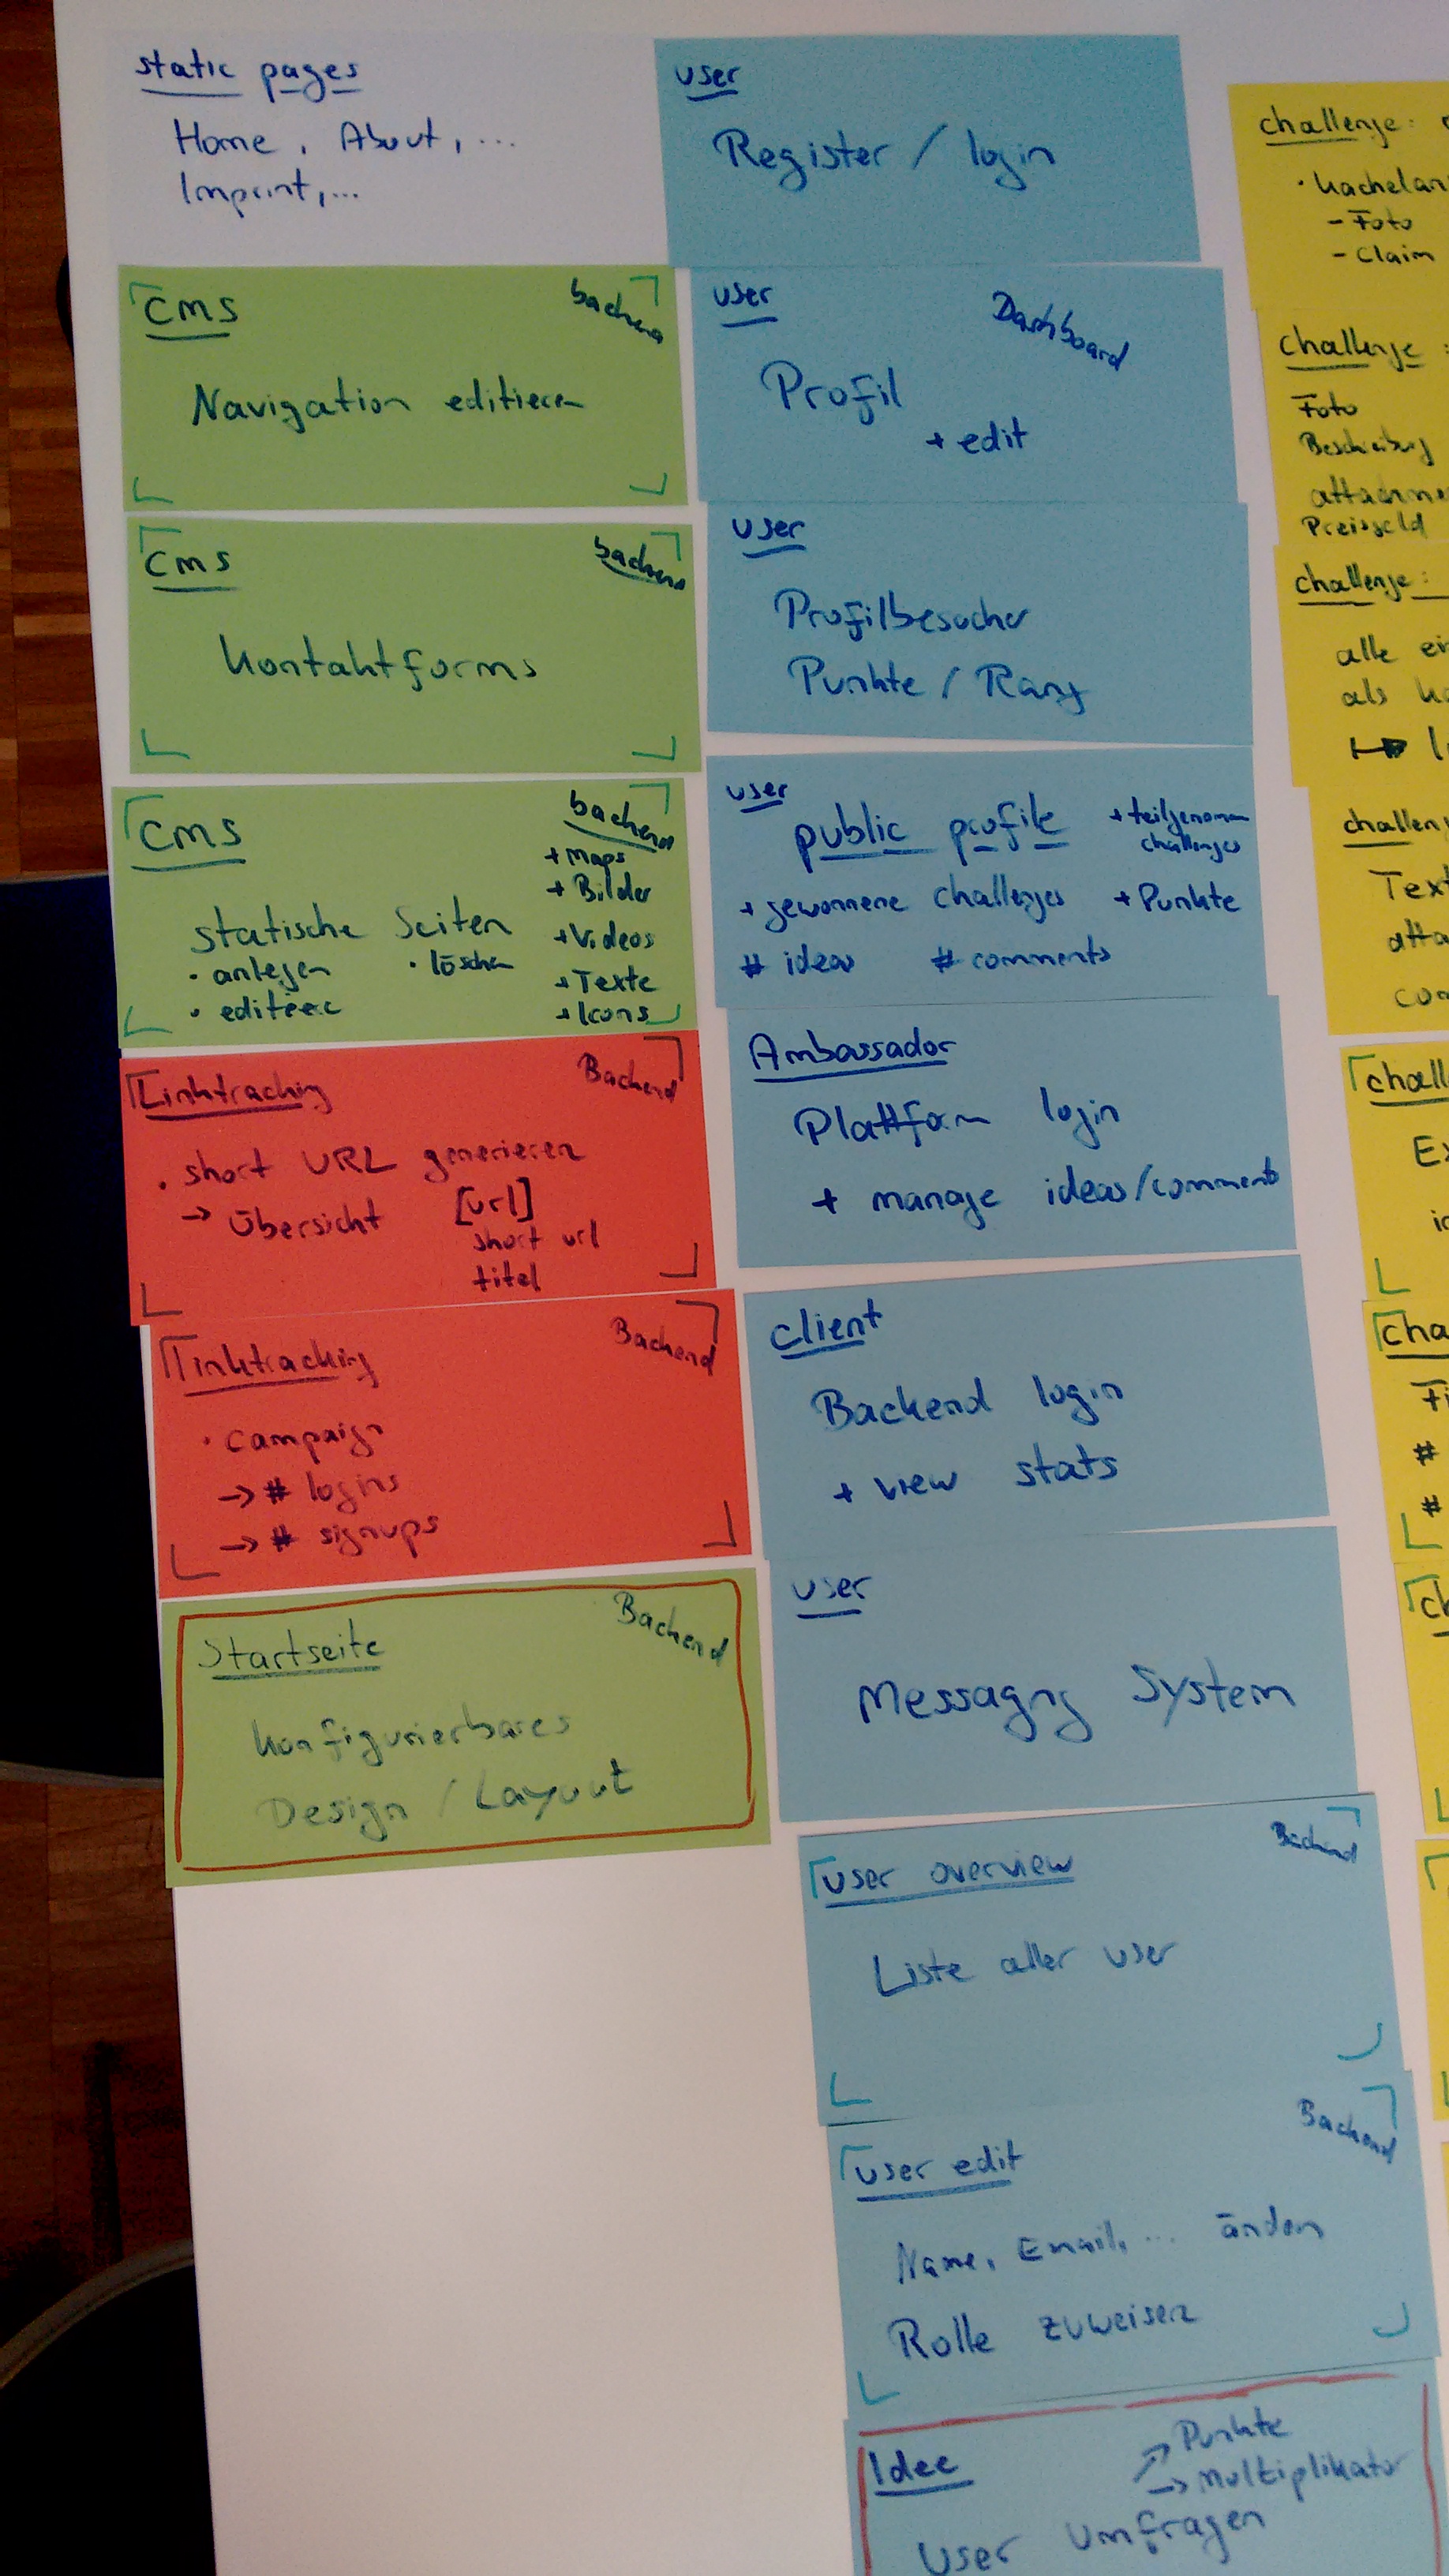 static pages
Home, About, ...
Imprint, ...
cms
backend
Navigation editieren
cms
backend
Kontaktforms
cms
backend
+ Maps
+ Bilder
+ Videos
+ Texte
+ Icons
statische Seiten
• anlegen • löschen
• editieren
Linktracking
Backend
• short URL generieren
→ Übersicht [url]
short url
titel
Linktracking
Backend
• Campaign
→ # logins
→ # signups
Startseite
Backend
Konfigurierbares
Design / Layout
user
Register / login
user
Dashboard
Profil
+ edit
user
Profilbesucher
Punkte / Rang
user
public profile
+ teilgenommen
challenges
+ gewonnene challenges + Punkte
# ideas # comments
Ambassador
Plattform login
+ manage ideas/comments
client
Backend login
+ view stats
user
Messaging System
user overview
Backend
Liste aller user
user edit
Backend
Name, Email, ... ändern
Rolle zuweisen
Idee
→ Punkte
→ Multiplikator
User Umfragen
challenge:
- Foto
- Claim
challenge:
Foto
Beschreibung
Preisgeld
challenge:
alle
als